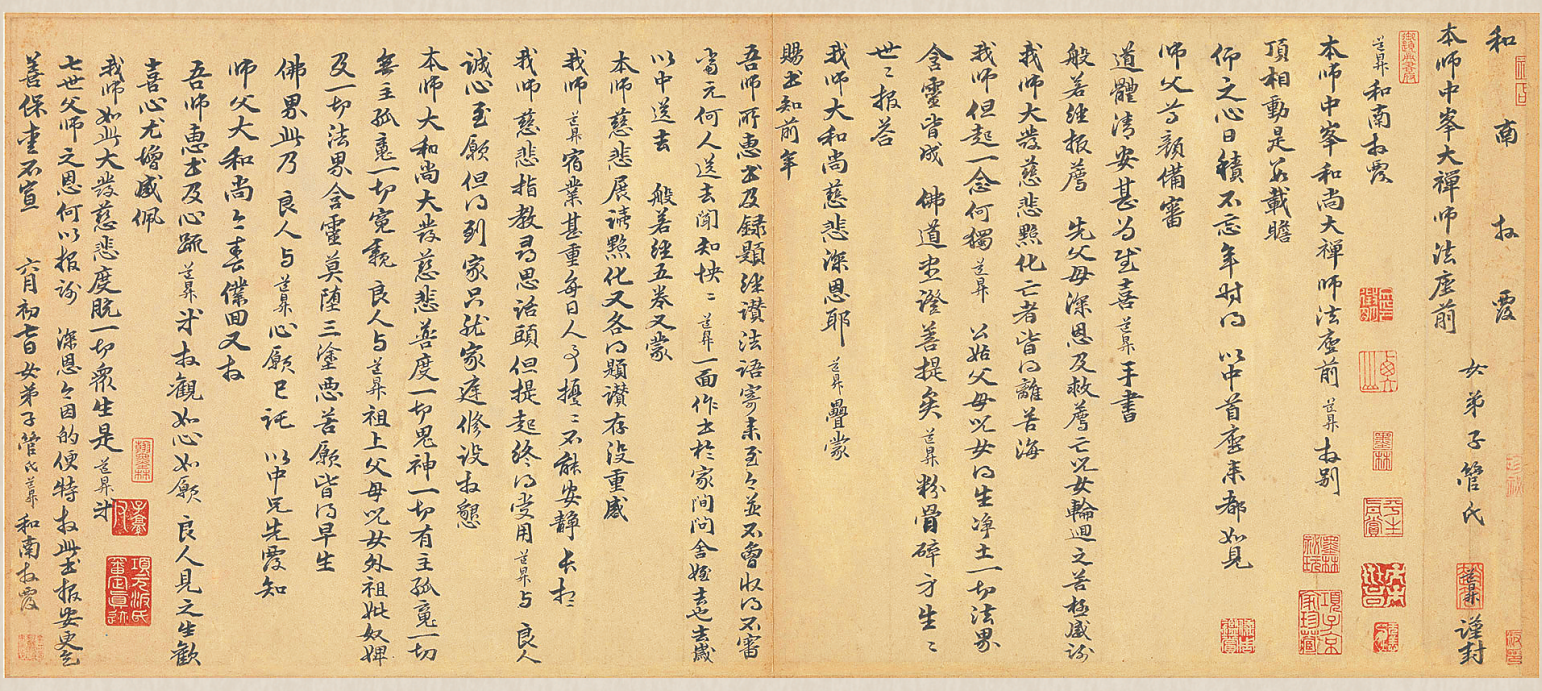 和南拜覆
女弟子管氏道昇謹封
本師中峯大禪師法座前
道昇和南拜覆
本師中峯和尚大禪師法座前道昇拜別
頂相動是數載瞻
仰之心日積不忘年時得 以中首座來都如見
師父尊顏備審
道體清安甚為慰喜道昇手書
般若經報薦 先父母深恩及救薦亡兒女輪迴之苦極感謝
我師大發慈悲點化亡者皆得離苦海
我師但起一念何獨道昇 公姑父母兒女得生淨土一切法界
含靈皆成 佛道坐證菩提矣道昇粉骨碎身生〻
世〻報荅
我師大和尚慈悲深恩耶 道昇疊蒙
賜書知前年
吾師所惠書及録題經讚法語寄來至今並不曾收得不審
當元何人送去聞知怏〻道昇一面作書於家間問舍姪去也去歲
以中送去 般若經五卷又蒙
本師慈悲展讀點化又各得題讚存没重感
我師道昇宿業甚重每日人事擾〻不能安靜長想
我師慈悲指教尋思話頭但提起終得受用道昇與 良人
誠心至願但得到家只就家庭修設拜懇
本師大和尚大發慈悲普度一切鬼神一切有主孤䰟一切
無主孤䰟一切寃親良人與道昇祖上父母兒女外祖妣奴婢
及一切法界含靈莫墮三塗惡苦願皆得早生
佛界此乃 良人與道昇心願已託 以中兄先覆知
師父大和尚今春僕回又拜
吾師惠書及心疏道昇拜觀如心如願 良人見之生歡
喜心尤增感佩
我師如此大發慈悲度脱一切衆生是道昇
七世父師之恩何以报謝 深恩今因的便特拜此書报安更乞
善保重不宣 六月初七日女弟子管氏道昇和南拜覆
墨林
項元汴氏審定真跡
項子京家珍藏
墨林祕玩
平生真賞